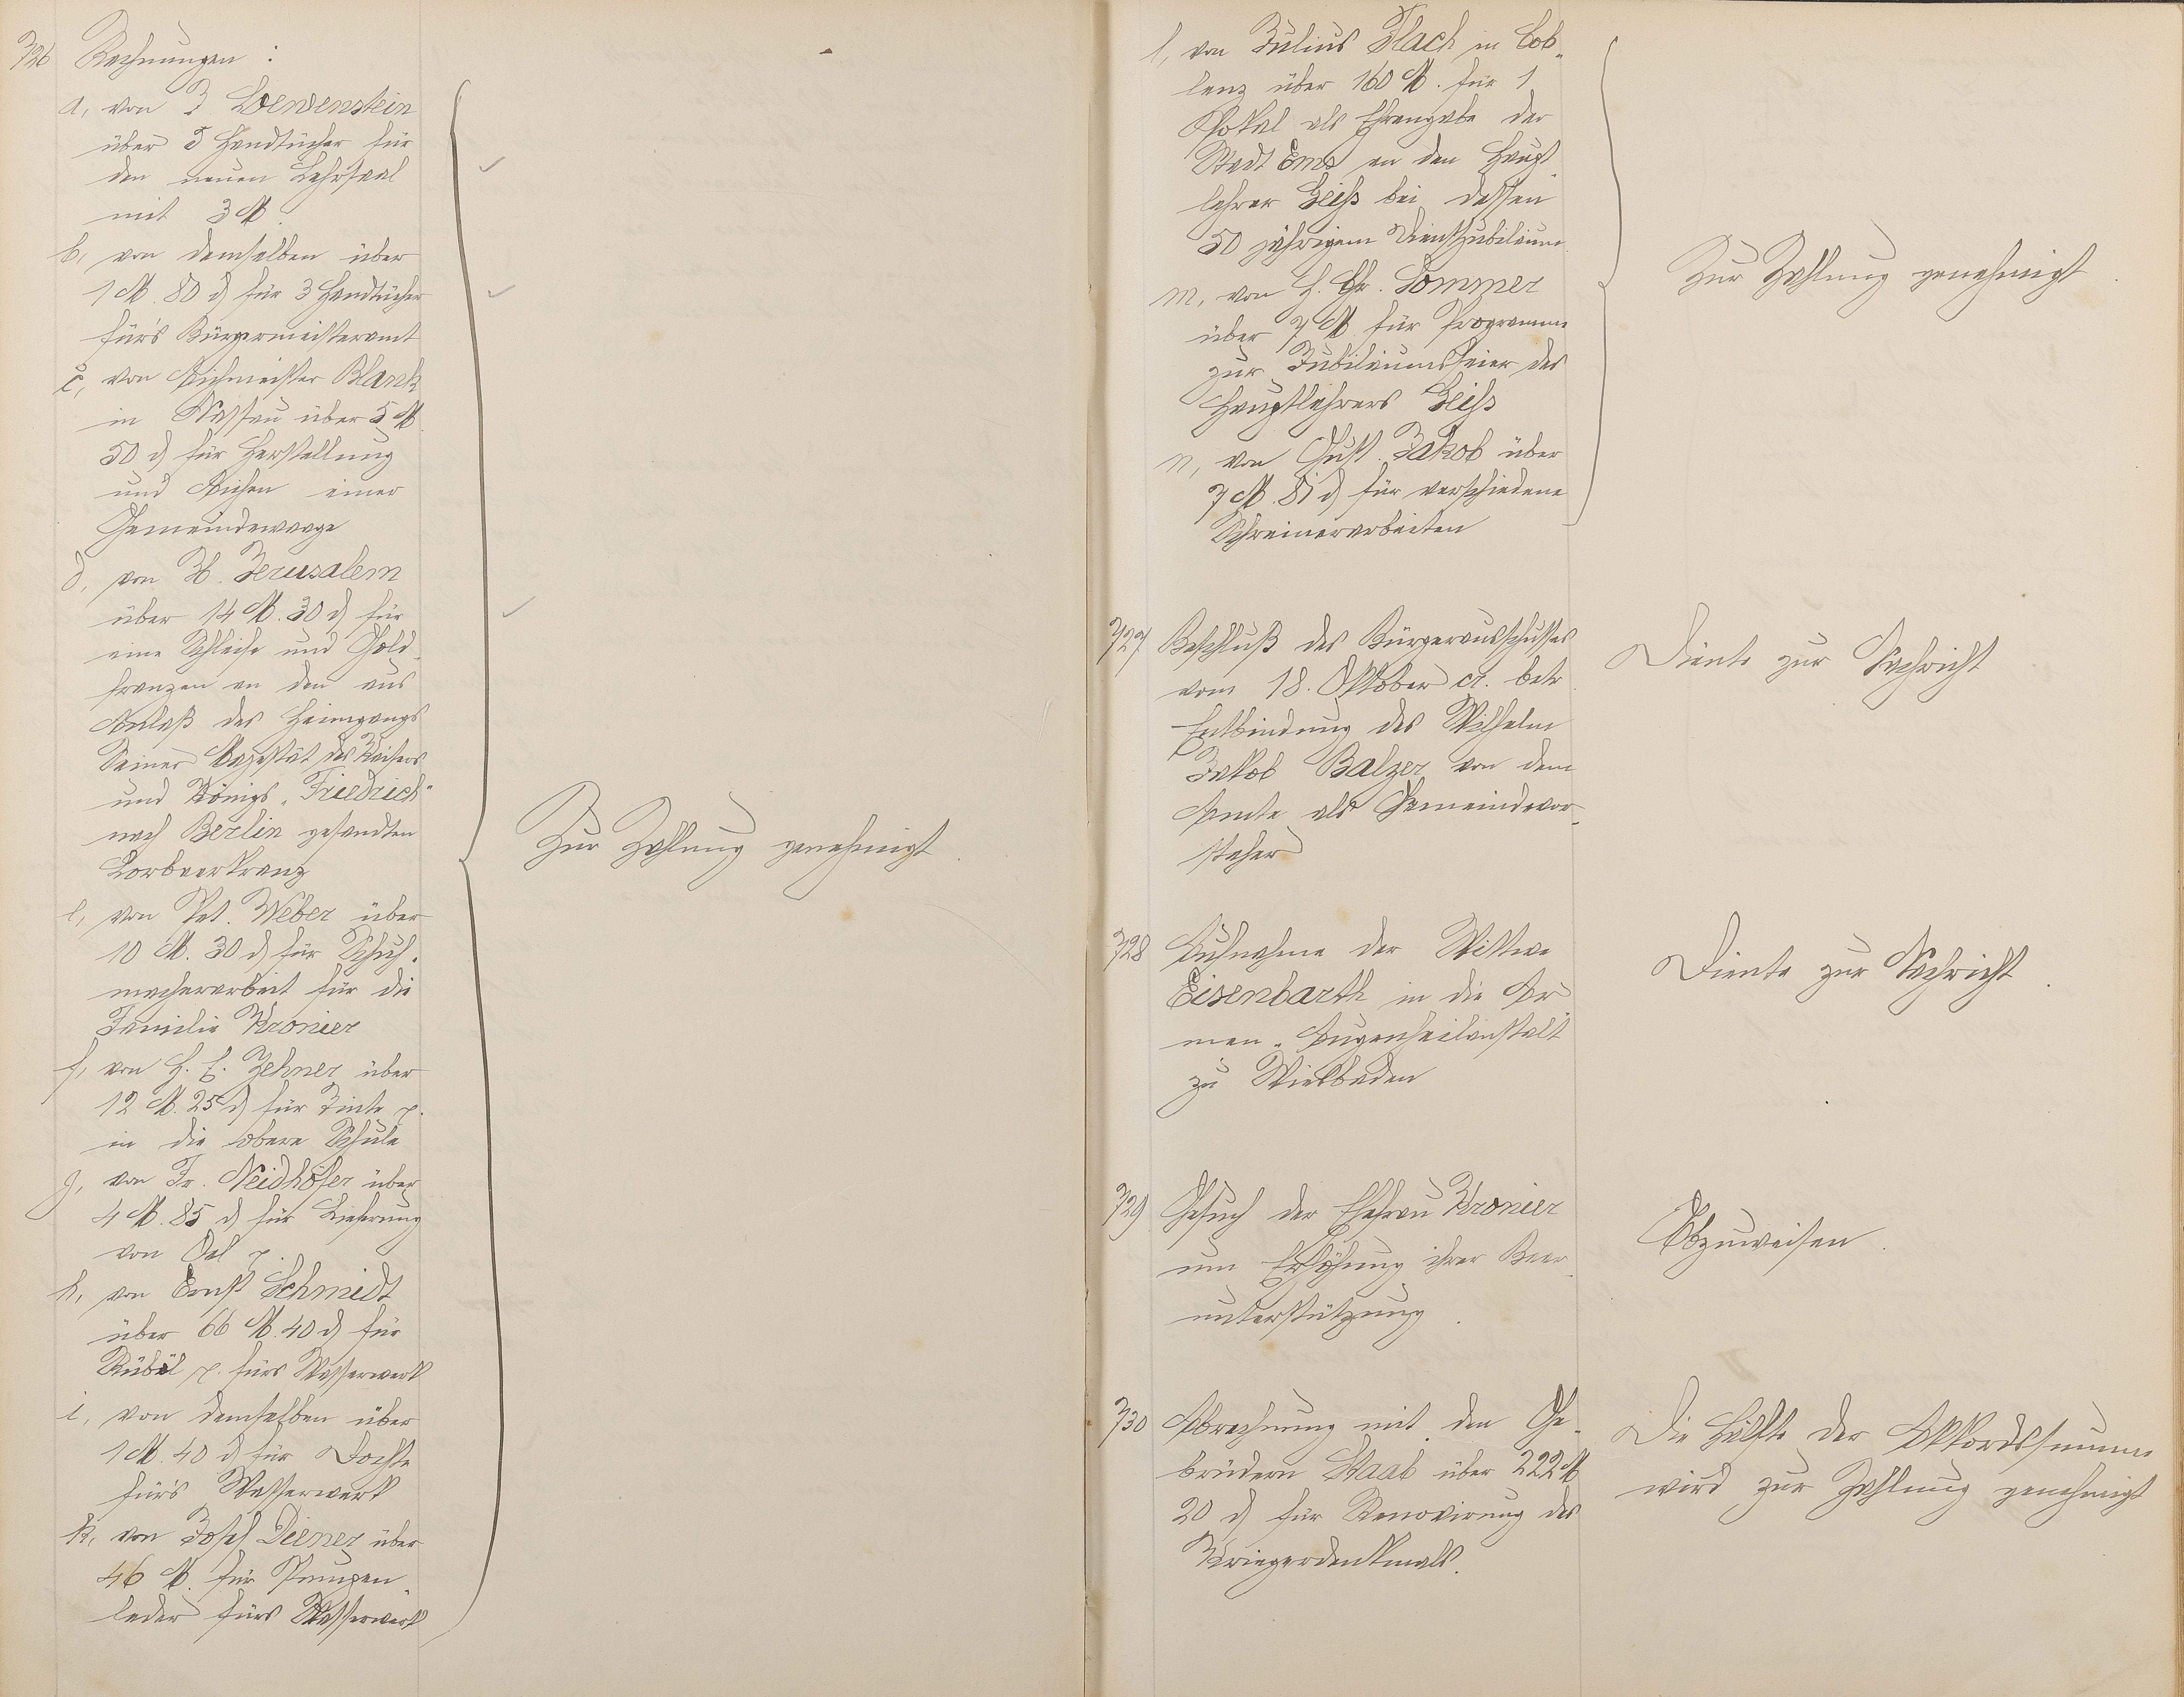 726 Rechnungen :
a, von J Loewenstein
über 5 Handtücher für
den neuen Lehrsaal
mit 3 M.
b, von demselben über
1 M. 80 d für 3 Handtücher
für's Bürgermeisteramt
c, von Aichmeister Blank
in Nassau über 5 M.
50 d für Herstellung
und Aichen einer
Gemeindewaage
d, von H. Jerusalem
über 14 M. 30 d für
eine Schleife und Gold-
franzen an den aus
Anlaß des Heimgangs
Seiner Majestät des Kaisers
und Königs „Friedrich"
nach Berlin gesandten
Lorbeerkranz
e, von Pet. Weber über
10 M. 30 d für Schuh-
macherarbeit für die
Familie Kronier
f, von H. E. Zehner über
12 M. 25 d für Tinte p.
in die obere Schule
g, von Fr. Neidhöfer über
4 M. 85 d für Lieferung
von Oel p.
h, von Ernst Schmidt
über 66 M. 40 d für
Rüböl p. fürs Wasserwerk
i, von demselben über
1 M. 40 d für Dochte
für's Wasserwerk
k, von Josef Diener über
46 M. für Pumpen-
leder fürs Wasserwerk
Zur Zahlung genehmigt.
l, von Julius Flach in Cob-
lenz über 160 M. für 1
Pokal als Ehrengabe der
Stadt Ems an den Haupt-
lehrer Geiß bei dessen
50 jährigem Dienstjubiläum.
m, von H. Chr. Sommer
über 7 M. für Programme
zur Jubiläumsfeier des
Hauptlehrers Geiß
n, von Gust. Jakob über
7 M. 81 d für verschiedene
Schreinerarbeiten
Zur Zahlung genehmigt.
727 Beschluß des Bürgerausschusses
vom 18. Oktober cr. betr.
Entbindung des Wilhelm
Jakob Balzer von dem
Amte als Gemeindevor-
steher
Diente zur Nachricht
728 Aufnahme der Wittwe
Eisenbarth in die Ar
men-Augenheilanstalt
zu Wiesbaden
Diente zur Nachricht.
729 Gesuch der Ehefrau Kronier
um Erhöhung ihrer Baar-
unterstützung.
Abzuweisen.
730 Abrechnung mit den Ge-
brüdern Raab über 222 M
20 d für Renovirung des
Kriegerdenkmals.
Die Hälfte der Akkordssumme
wird zur Zahlung genehmigt